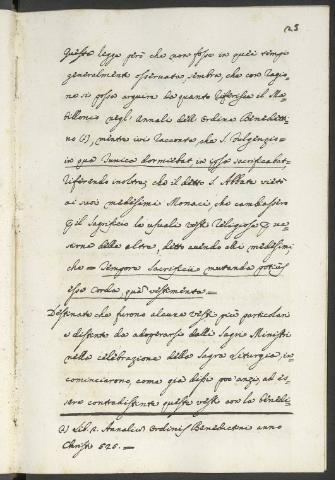 23
Questa legge però che non fosse in quei tempi
generalmente osservata, sembra, che con ragio„
ne si possa arguire da quanto riferisce il Ma„
billonio negl'Annali dell'Ordine Benedetti„
no (a), mentre ivi racconta che S. Fulgenzio =
in qua Tunica dormiebat, in ipsa sacrificabat =
riferendo inoltre che il detto S. Abbate vietò
ai suoi medesimi Monaci che cambassero
p il Sagrificio le usuali vesti Religiose
della altre, detto avendo alli medesimi,
che = Tempore Sacrificii mutanda potius
esse Corda, quam vestimenta =
Destinate che furono alcune vesti più particolari
e distinte da adoperarsi dalli Sagri Ministri
nella celebrazione della Sagra Liturgia, in„
cominciarono, come già dissi poc'anzi, ad es„
sere contradistinte queste vesti con la benedi„
(a) Lib. 2. Annalium Ordinis Benedictini anno
Christi 526. =